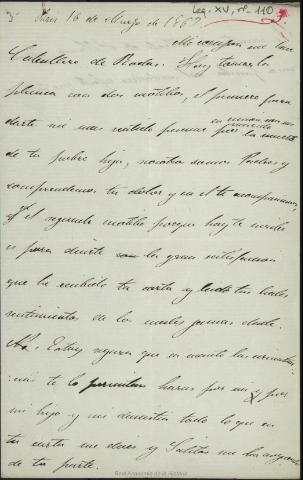 Leg. XV, nº 110
3
Paris 16 de Marzo de 1869
Mi
Celestino de Rada. Hoy tomo la
pluma con dos motibos, el primero para
darte mi mas sentido pesame
por la muerte
de tu pobre hija, nosotros somos Padres y
comprendemos tu dolor y en el te acompañamos,
y el segundo motibo porque hoy te escribo
es para decirte la gran satisfaccion
que he recibido tu carta y tus leales
sentimientos de los cuales jamas dude
Estoy segura que en cuando las circunstan-
cias te lo permitan haras por mi y por
mi hijo y mi dinastia todo lo que en
tu carta me dices y
de tu parte.
Real Academia de la Historia